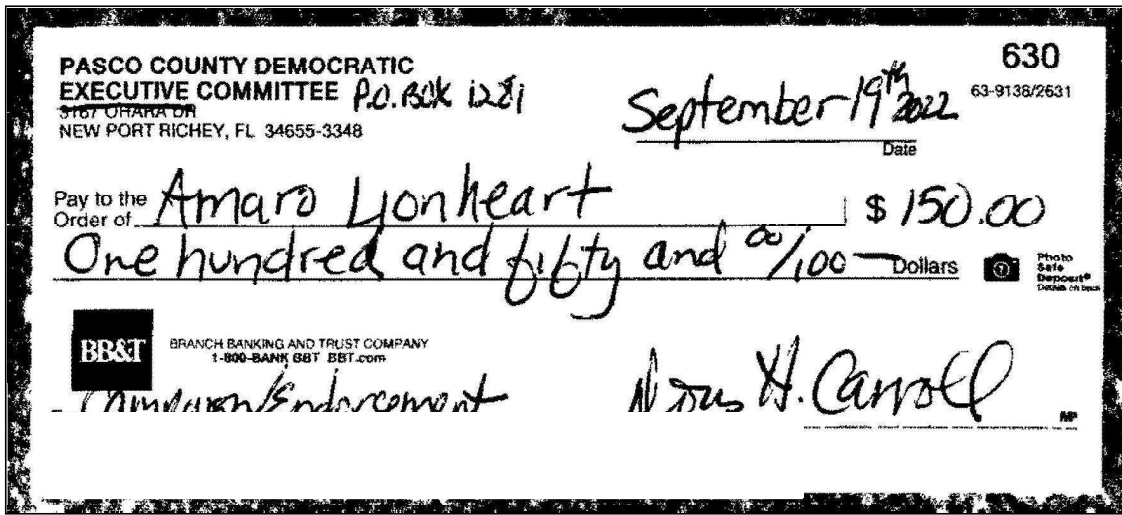 PASCO COUNTY DEMOCRATIC 630
EXECUTIVE COMMITTEE P.O. BOX 1281
3167 OHARA DR September 19th 2022 63-9138/2631
NEW PORT RICHEY, FL 34655-3348
Date
Pay to the
Order of Amaro Lionheart $ 150.00
One hundred and fifty and 00/100 Dollars
Photo
Safe
Deposit®
Details on back
BB&T BRANCH BANKING AND TRUST COMPANY
1-800-BANK BBT BBT.com
Campaign/Endorcement H. Carroll
MP